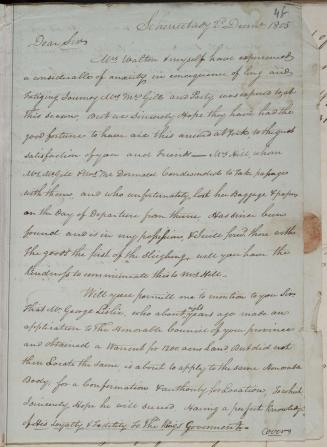 48
Schenectady 2d Decemr 1805
Dear Sir
Mrs Walton & myself have experienced
a considerable of anxiety in consequence of long and
Fatiguing Journey Mrs McGill and Party was exposed to at
this season, But we Sincerely Hope they have had the
good fortune to have are this arrived at York to the great
satisfaction of you and Friends — Mrs Hill, whom
Mrs McGill & Mrs McDormed Condesended to take passage
with them, and who unfortunately lost her Baggage & papers
on the Day of Departure from thence Has since been
found and is in my possession, & shall forwd them with
the goods the first of the Sleighing will you have the
Kindness to communicate this to Mrs Hill.
Well you permitt me to mention to you Sir
That Mr George Leslie, who about years ago made an
application to the Honorable Council of your province
and obtained a Warrent for 1200 acres land But did not
then Locate the Same, is about to apply to the same Honorable
Body, for a Confirmation & authority for Location, In which
I sincerely Hope he will succeed Having a perfect Knowledge
of His Loyalty & Fidelity to the Kings Government
over